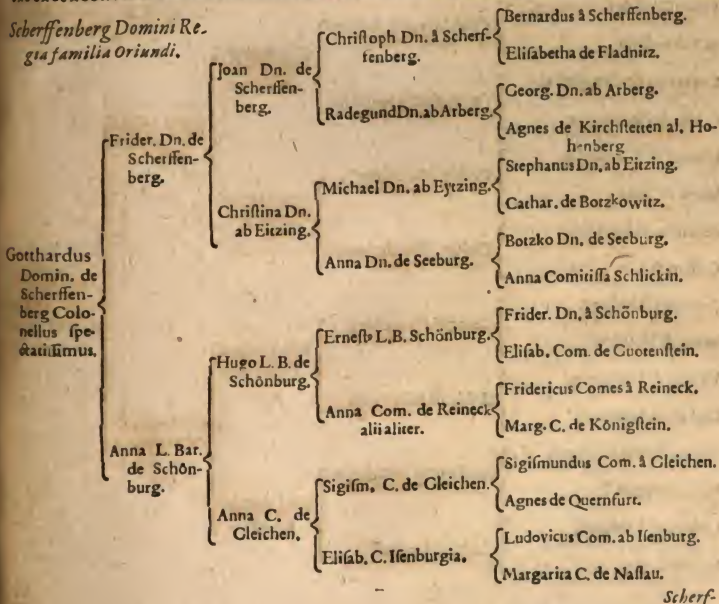 Scherffenberg Domini Re-
gia familia Oriundi.
Gotthardus
Domin. de
Scherffen-
berg Colo-
nellus spe-
ctatissimus.
Frider. Dn. de
Scherffen-
berg.
Anna L. Bar.
de Schön-
burg.
Joan Dn. de
Scherffen-
berg.
Christina Dn.
ab Eitzing.
Hugo L. B. de
Schönburg.
Anna C. de
Gleichen.
Christoph Dn. â Scherf-
fenberg.
Radegund Dn. ab Arberg.
Michael Dn. ab Eytzing.
Anna Dn. de Seeburg.
Ernest9 L. B. Schönburg.
Anna Com. de Reineck
alii aliter.
Sigism. C. de Gleichen.
Elisab. C. Isenburgia.
Bernardus â Scherffenberg.
Elisabetha de Fladnitz.
Georg. Dn. ab Arberg.
Agnes de Kirchstetten al. Ho-
henberg
Stephanus Dn. ab Eitzing.
Cathar. de Botzkowitz.
Botzko Dn. de Seeburg.
Anna Comitissa Schlickin.
Frider. Dn. â Schönburg.
Elisab. Com. de Guotenstein.
Fridericus Comes â Reineck.
Marg. C. de Königstein.
Sigismundus Com. â Gleichen.
Agnes de Quernfurt.
Ludovicus Com. ab Isenburg.
Margarita C. de Nassau.
Scherf-